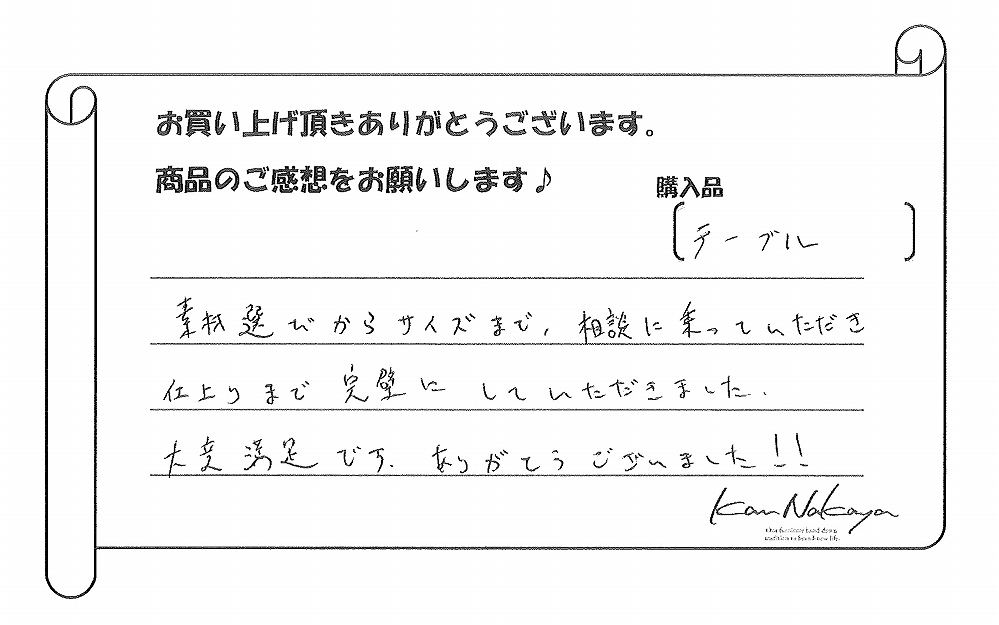 お買い上げ頂きありがとうございます。
商品のご感想をお願いします♪
購入品
〔テーブル〕
素材選びからサイズまで、相談に乗っていただき
仕上りまで完璧に していただきました.
大変満足です. ありがとうございました!!
Kan Nakaya